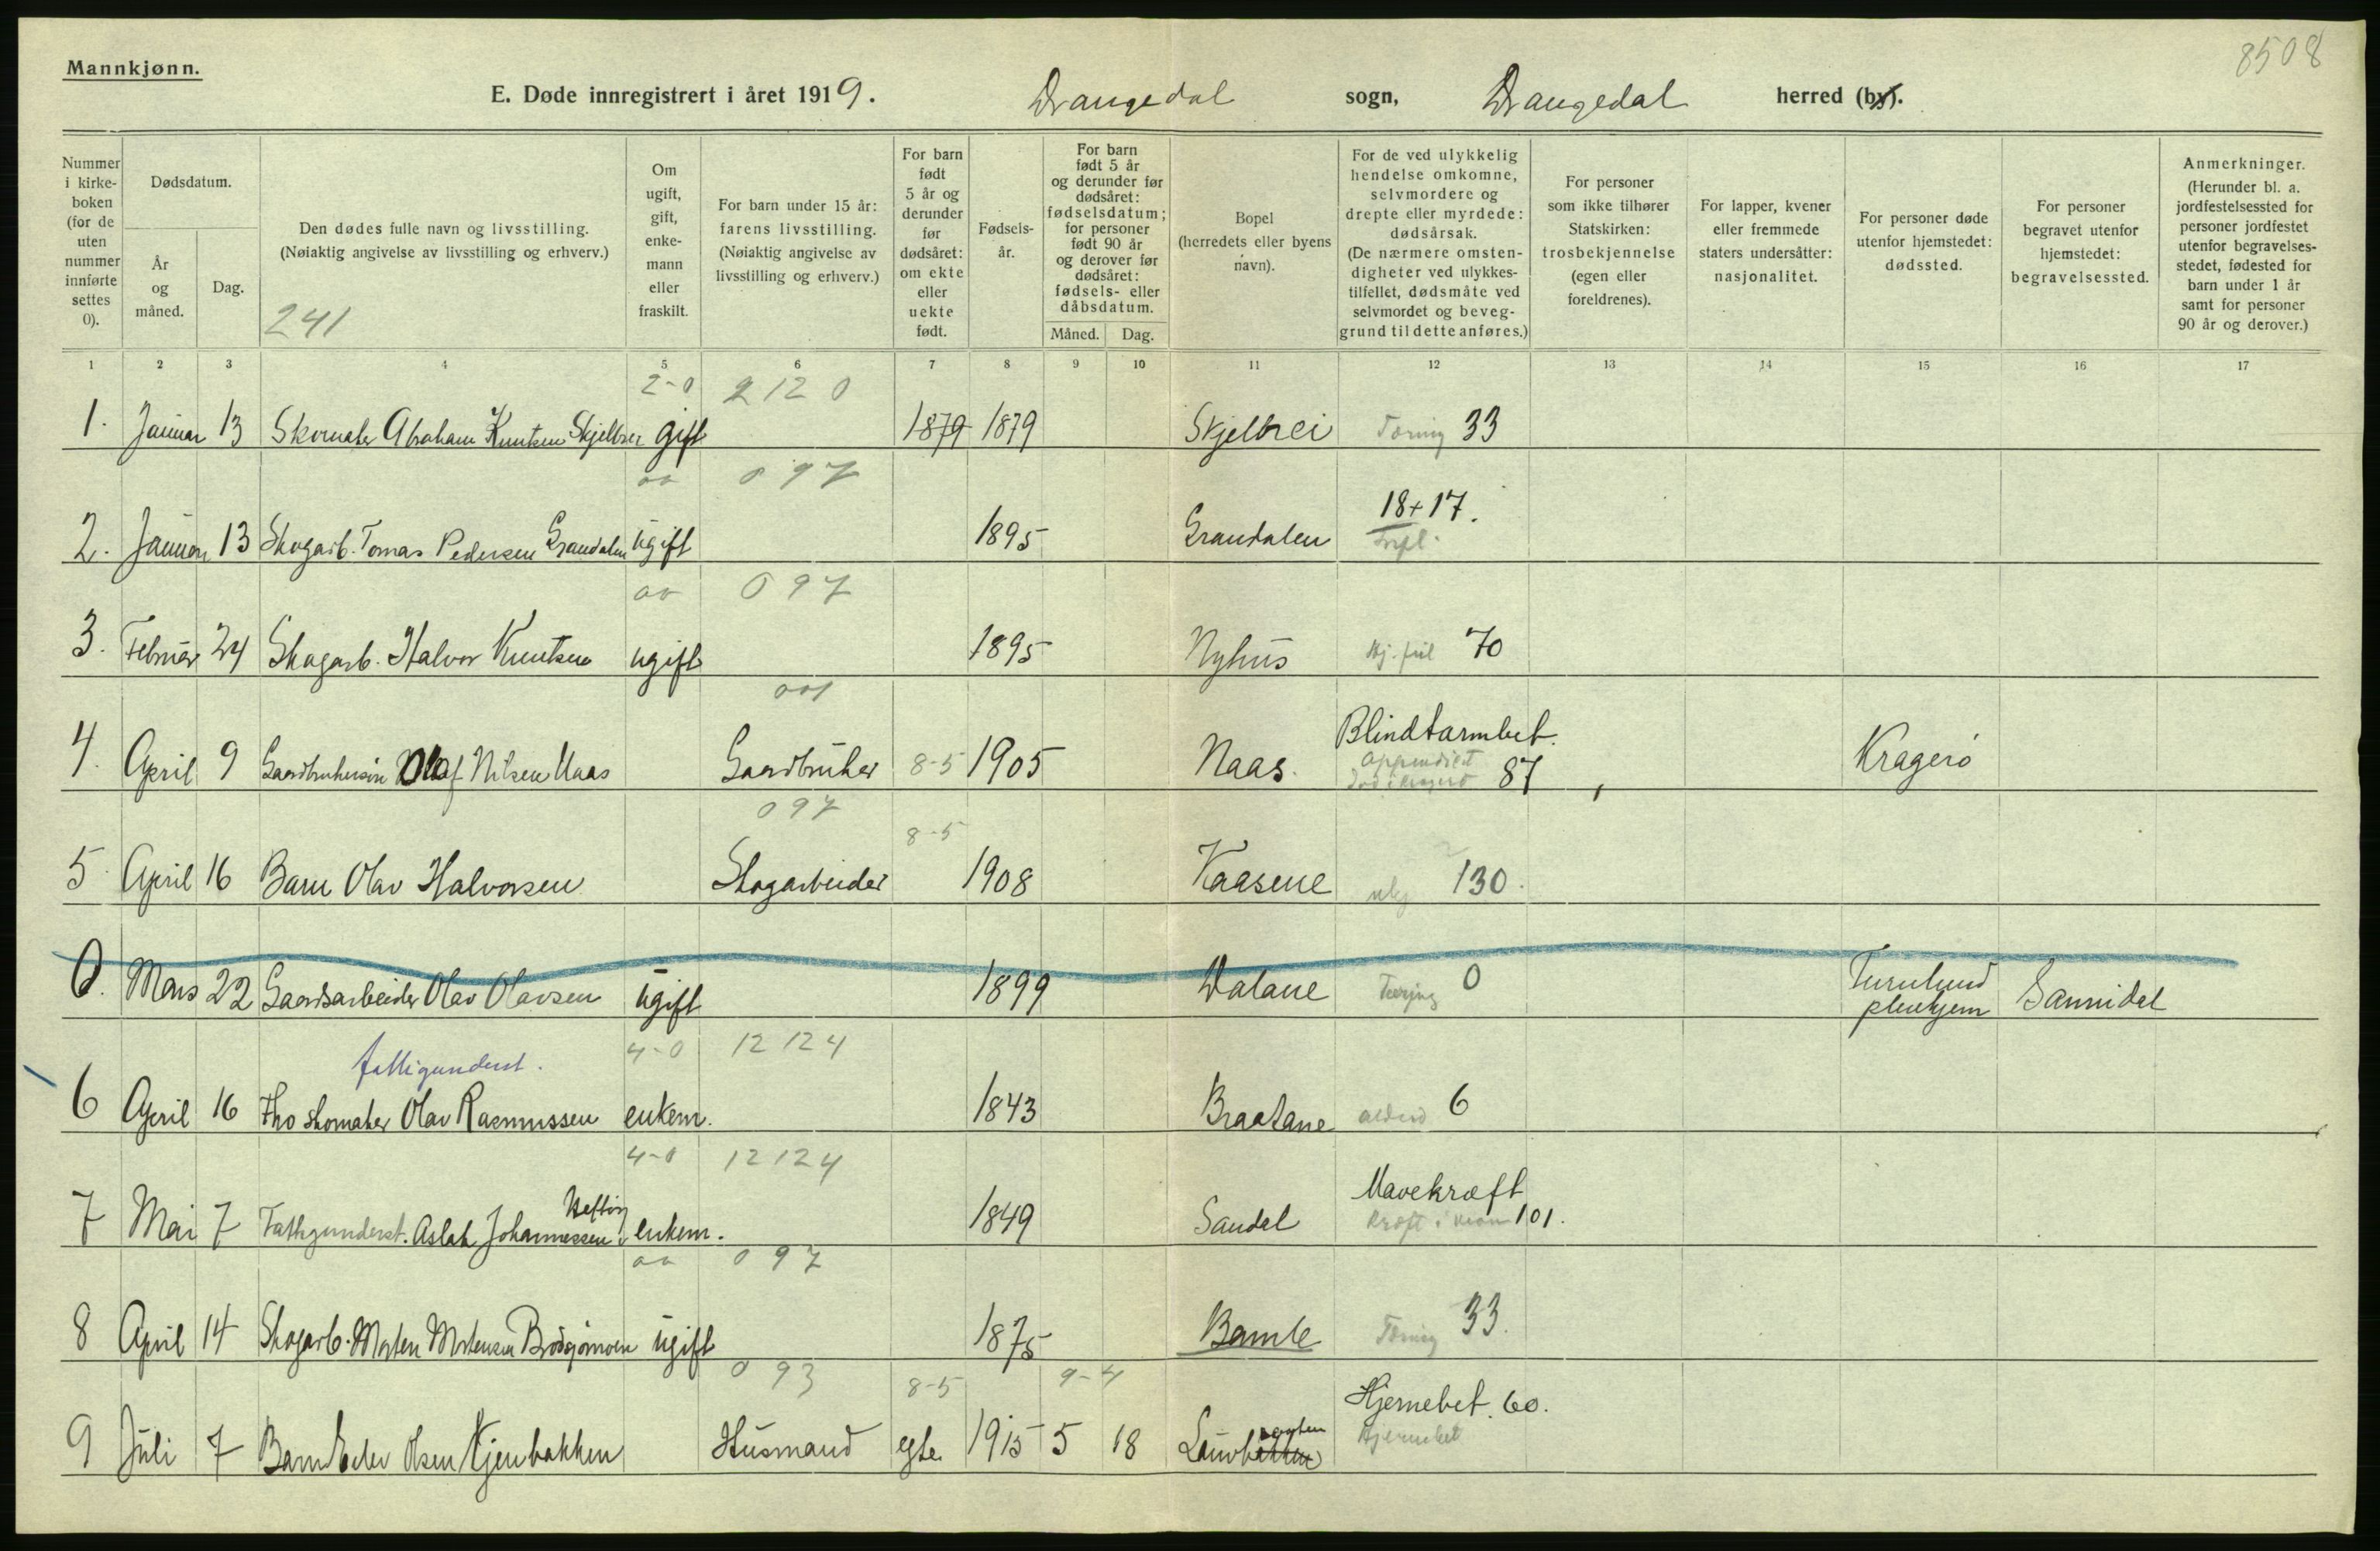 8508
Mannkjønn.
E. Døde innregistrert i året 1919. Drangedal sogn, Drangedal herred (by).
Nummer i kirke-boken (for de uten nummer innførte settes 0).
Dødsdatum.
År og måned.
Dag.
Den dødes fulle navn og livsstilling.
(Nøiaktig angivelse av livsstilling og erhverv.)
241
Om ugift, gift, enke-mann eller fraskilt.
For barn under 15 år: farens livsstilling.
(Nøiaktig angivelse av livsstilling og erhverv.)
For barn født 5 år og derunder før dødsåret: om ekte eller uekte født.
Fødsels-år.
For barn født 5 år og derunder før dødsåret: fødselsdatum; for personer født 90 år og derover før dødsåret: fødsels- eller dåbsdatum.
Måned. Dag.
Bopel (herredets eller byens navn).
For de ved ulykkelig hendelse omkomne, selvmordere og drepte eller myrdede: dødsårsak.
(De nærmere omsten-digheter ved ulykkes-tilfellet, dødsmåte ved selvmordet og beveg-grund til dette anføres.)
For personer som ikke tilhører Statskirken: trosbekjennelse (egen eller foreldrenes).
For lapper, kvener eller fremmede staters undersåtter: nasjonalitet.
For personer døde utenfor hjemstedet: dødssted.
For personer begravet utenfor hjemstedet: begravelsessted.
Anmerkninger.
(Herunder bl. a. jordfestelsessted for personer jordfestet utenfor begravelses-stedet, fødested for barn under 1 år samt for personer 90 år og derover.)
1 2 3 4 5 6 7 8 9 10 11 12 13 14 15 16 17
2-0 2 12 0
1. Januar 13 Skomaker Abraham Knutsen Skjelbrei gift 1879 1879 Skjelbrei Tæring 33
097
18+17.
2. Januar 13 Skogarb. Tomas Pedersen Grandalen ugift 1895 Grandalen
097
3. Februar 24 Skogarb. Halvor Knutsen ugift 1895 Nyhus 70
001
Blindtarmbet.
4. April 9 Gaardbrukersøn Olaf Nilsen Naas Gaardbruker 8-5 1905 Naas. Appendicit 87 Kragerø
Død i Kragerø
097
8-5
5 April 16 Barn Olav Halvorsen Skogarbeider 1908 Kaasene 130.
0. Mars 22 Gaardsarbeider Olav Olavsen ugift 1899 Dalane Tæring 0 pleiehjem Sannidal
4-0 12 124
fattigunderst.
6 April 16 Fho skomaker Olav Rasmussen enkem. 1843 Braatane 6
4-0 12 124
Mavekræft
7 Mai 7 Fattigunderst. Aslak Johannessen enkem. 1849 Sandal Kræft i 101.
097
8 April 14 Skogarb. Morten Mortensen ugift 1875 Bamle Tæring 33.
093 8-5 9-4
Hjernebet. 60.
9 Juli 7 Barn Olsen Kjenbakken Husmand egte. 1915 5 18 Hjernebet